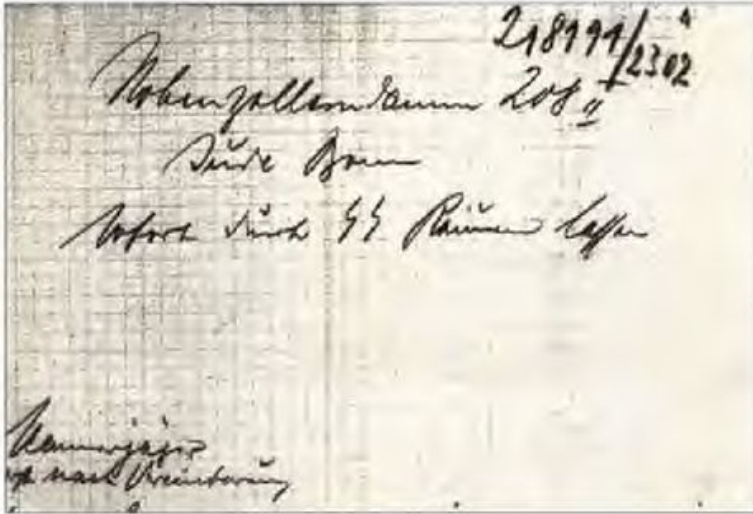 218191/2302
Hohenzollerndamm 208 II
Jude
Sofort durch SS Räumen lassen
Kammerjäger
nach